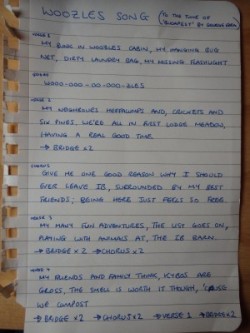 WOOZLES SONG (TO THE TUNE OF
VERSE 1
MY BUNK IN WOOZLES CABIN, MY HANGING BUG
NET, DIRTY LAUNDRY BAG, MY MISSING FLASHLIGHT
WOOO-OOO-OO-OOO-ZLES
VERSE 2
MY NEIGHBOURS HEFFALUMPS AND, CRICKETS AND
SIX PINES, WE'RE ALL IN FIRST LODGE MEADOW,
HAVING A REAL GOOD TIME.
→ BRIDGE x2
CHORUS
GIVE ME ONE GOOD REASON WHY I SHOULD
EVER LEAVE IB, SURROUNDED BY MY BEST
FRIENDS, BEING HERE JUST FEELS SO FREE.
VERSE 3
MY MANY FUN ADVENTURES, THE LIST GOES ON,
PLAYING WITH ANIMALS AT, THE IB BARN.
→ BRIDGE x2 → CHORUS x2
VERSE 4
MY FRIENDS AND FAMILY THINK, ARE
GROSS, THE SMELL IS WORTH IT THOUGH,
WE COMPOST
→ BRIDGE x2 → CHORUS x2 → VERSE 1 → BRIDGE x2